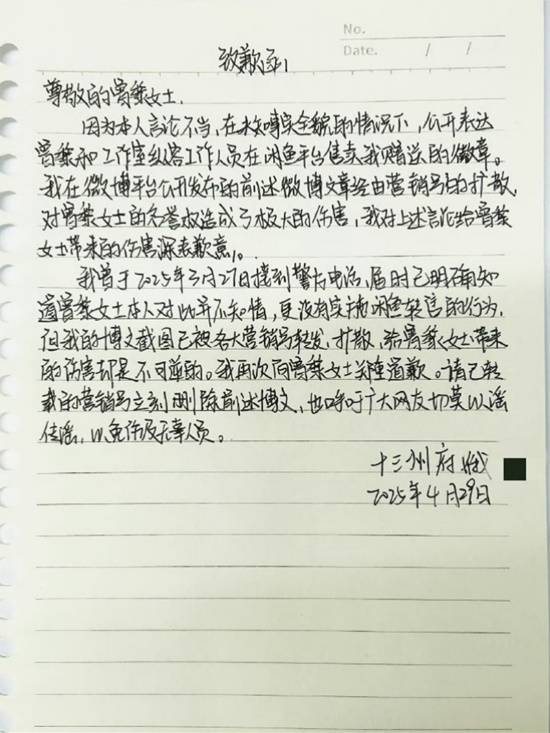 No.
Date. / /
致歉函
尊敬的曾黎女士:
因为本人言论不当,在未知事实全貌的情况下,公开表达
曾黎和工作室纵容工作人员在闲鱼平台售卖我赠送的徽章。
我在微博平台公开发布的前述微博文章经由营销号的扩散,
对曾黎女士的名誉权造成了极大的伤害,我对上述言论给曾黎
女士带来的伤害深表歉意。
我曾于2025年3月27日接到警方电话,届时已明确知
道曾黎女士本人对此并不知情,更没有实施闲鱼转售的行为,
但我的博文截图已被各大营销号转发、扩散,给曾黎女士带来
的伤害却是不可逆的。我再次向曾黎女士郑重道歉。请已转
载的营销号立刻删除前述博文,也呼吁广大网友切莫以谣
传谣,以免涉及无辜人员。
十三州府
2025年4月29日